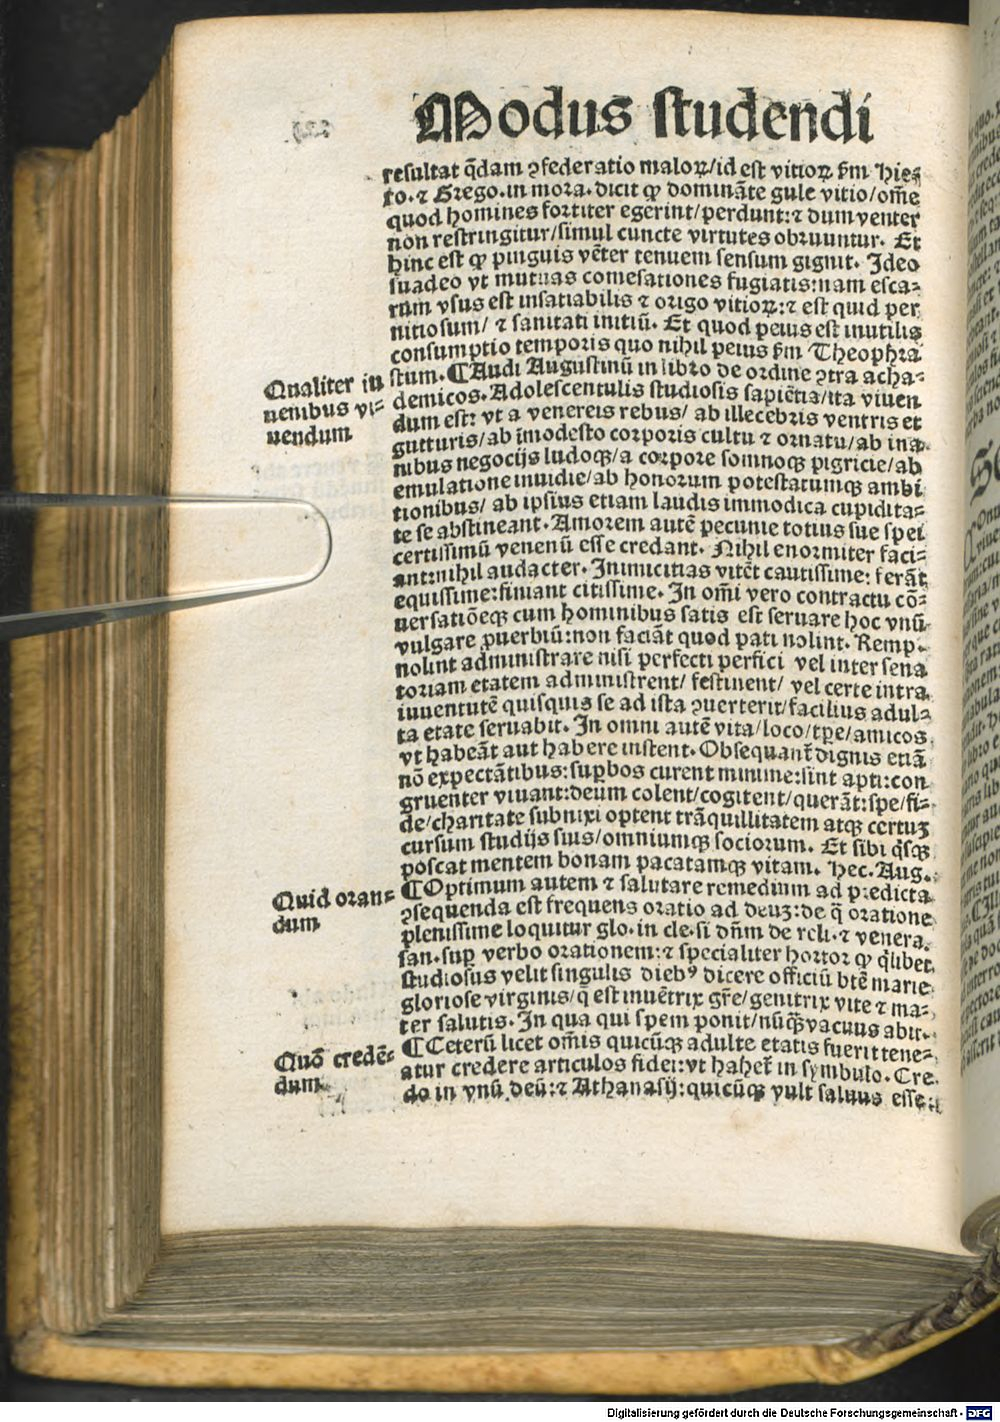 Modus studendi
resultat q̄dam ꝯfederatio maloꝝ/id est vitioꝝ ẜm Hie⸗
ro.⁊ Grego.in mora.dicit ꝙ domināte gule vitio/om̄e
quod homines fortiter egerint/perdunt:⁊ dum venter
non restringitur/simul cuncte virtutes obruuntur. Et
hinc est ꝙ pinguis vēter tenuem sensum gignit. Ideo
suadeo vt mutuas comesationes fugiatis:nam esca⸗
rum vsus est insatiabilis ⁊ origo vitioꝝ:⁊ est quid per
nitiosum/ ⁊ sanitati initiū. Et quod peius est inutilis
consumptio temporis quo nihil peius ẜm Theophra
stum. ¶Audi Augustinū in libro de ordine ꝯtra acha⸗
Qualiter iu
uenibus vi⸗
uendum
demicos. Adolescentulis studiosis sapiētia/ita viuen
dum est: vt a venereis rebus/ ab illecebris ventris et
gutturis/ab īmodesto corporis cultu ⁊ ornatu/ab ina⸗
nibus negocijs ludoꝝ/a corpore somnoqꝫ pigricie/ab
emulatione inuidie/ab honorum potestatumqꝫ ambi
tionibus/ ab ipsius etiam laudis immodica cupidita⸗
te se abstineant. Amorem autē pecunie totius sue spei
certissimū venenū esse credant. Nihil enormiter faci⸗
ant:nihil audacter. Inimicitias vitēt cautissime: ferāt
equissime:finiant citissime. In om̄i vero contractu cō⸗
uersatiōeqꝫ cum hominibus satis est seruare hoc vnū
vulgare ꝓuerbiū:non faciāt quod pati nolint. Remp.
nolint administrare nisi perfecti perfici vel inter sena
toriam etatem administrent/ festinent/ vel certe intra
iuuentutē quisquis se ad ista ꝯuerterit/facilius adul⸗
ta etate seruabit. In omni autē vita/loco/tꝑe/amicos
vt habeāt aut habere instent. Obsequant᷑ dignis etiā
nō expectātibus:suꝑbos curent minime:sint apti:con
gruenter viuant:deum colent/cogitent/querāt:spe/fi⸗
de/charitate subnixi optent trāquillitatem atqꝫ certuꝫ
cursum studijs suis/omniumqꝫ sociorum. Et sibi q̇sqꝫ
poscat mentem bonam pacatamqꝫ vitam. Hec. Aug.
Quid oran⸗
dum
¶Optimum autem ⁊ salutare remedium ad predicta
ꝯsequenda est frequens oratio ad deuꝫ:de q̄ oratione
plenissime loquitur glo.in cle.si dn̄m de reli.⁊ venera.
san.suꝑ verbo orationem:⁊ specialiter hortor ꝙ q̇libet
studiosus velit singulis diebꝰ dicere officiū btē marie
gloriose virginis/q̄ est inuētrix gr̄e/genitrix vite ⁊ ma⸗
ter salutis. In qua qui spem ponit/nūqꝫ vacuus abit.
Quō credē⸗
dum
¶Ceterū licet om̄is quicūqꝫ adulte etatis fuerit tene⸗
atur credere articulos fidei:vt habet᷑ in symbulo. Cre
do in vnū deū:⁊ Athanasij:quicūqꝫ vult saluus esse:
Digitalisierung gefördert durch die Deutsche Forschungsgemeinschaft - DFG